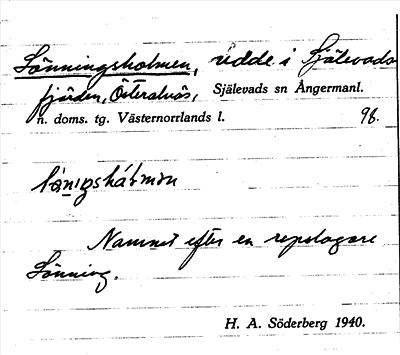 Lönningsholmen, udde i Själevads
fjärden, Österalnäs, Själevads sn Ångermanl.
n. doms. tg. Västernorrlands l. 98.
Namnet efter en repslagare
Lönning.
H. A. Söderberg 1940.